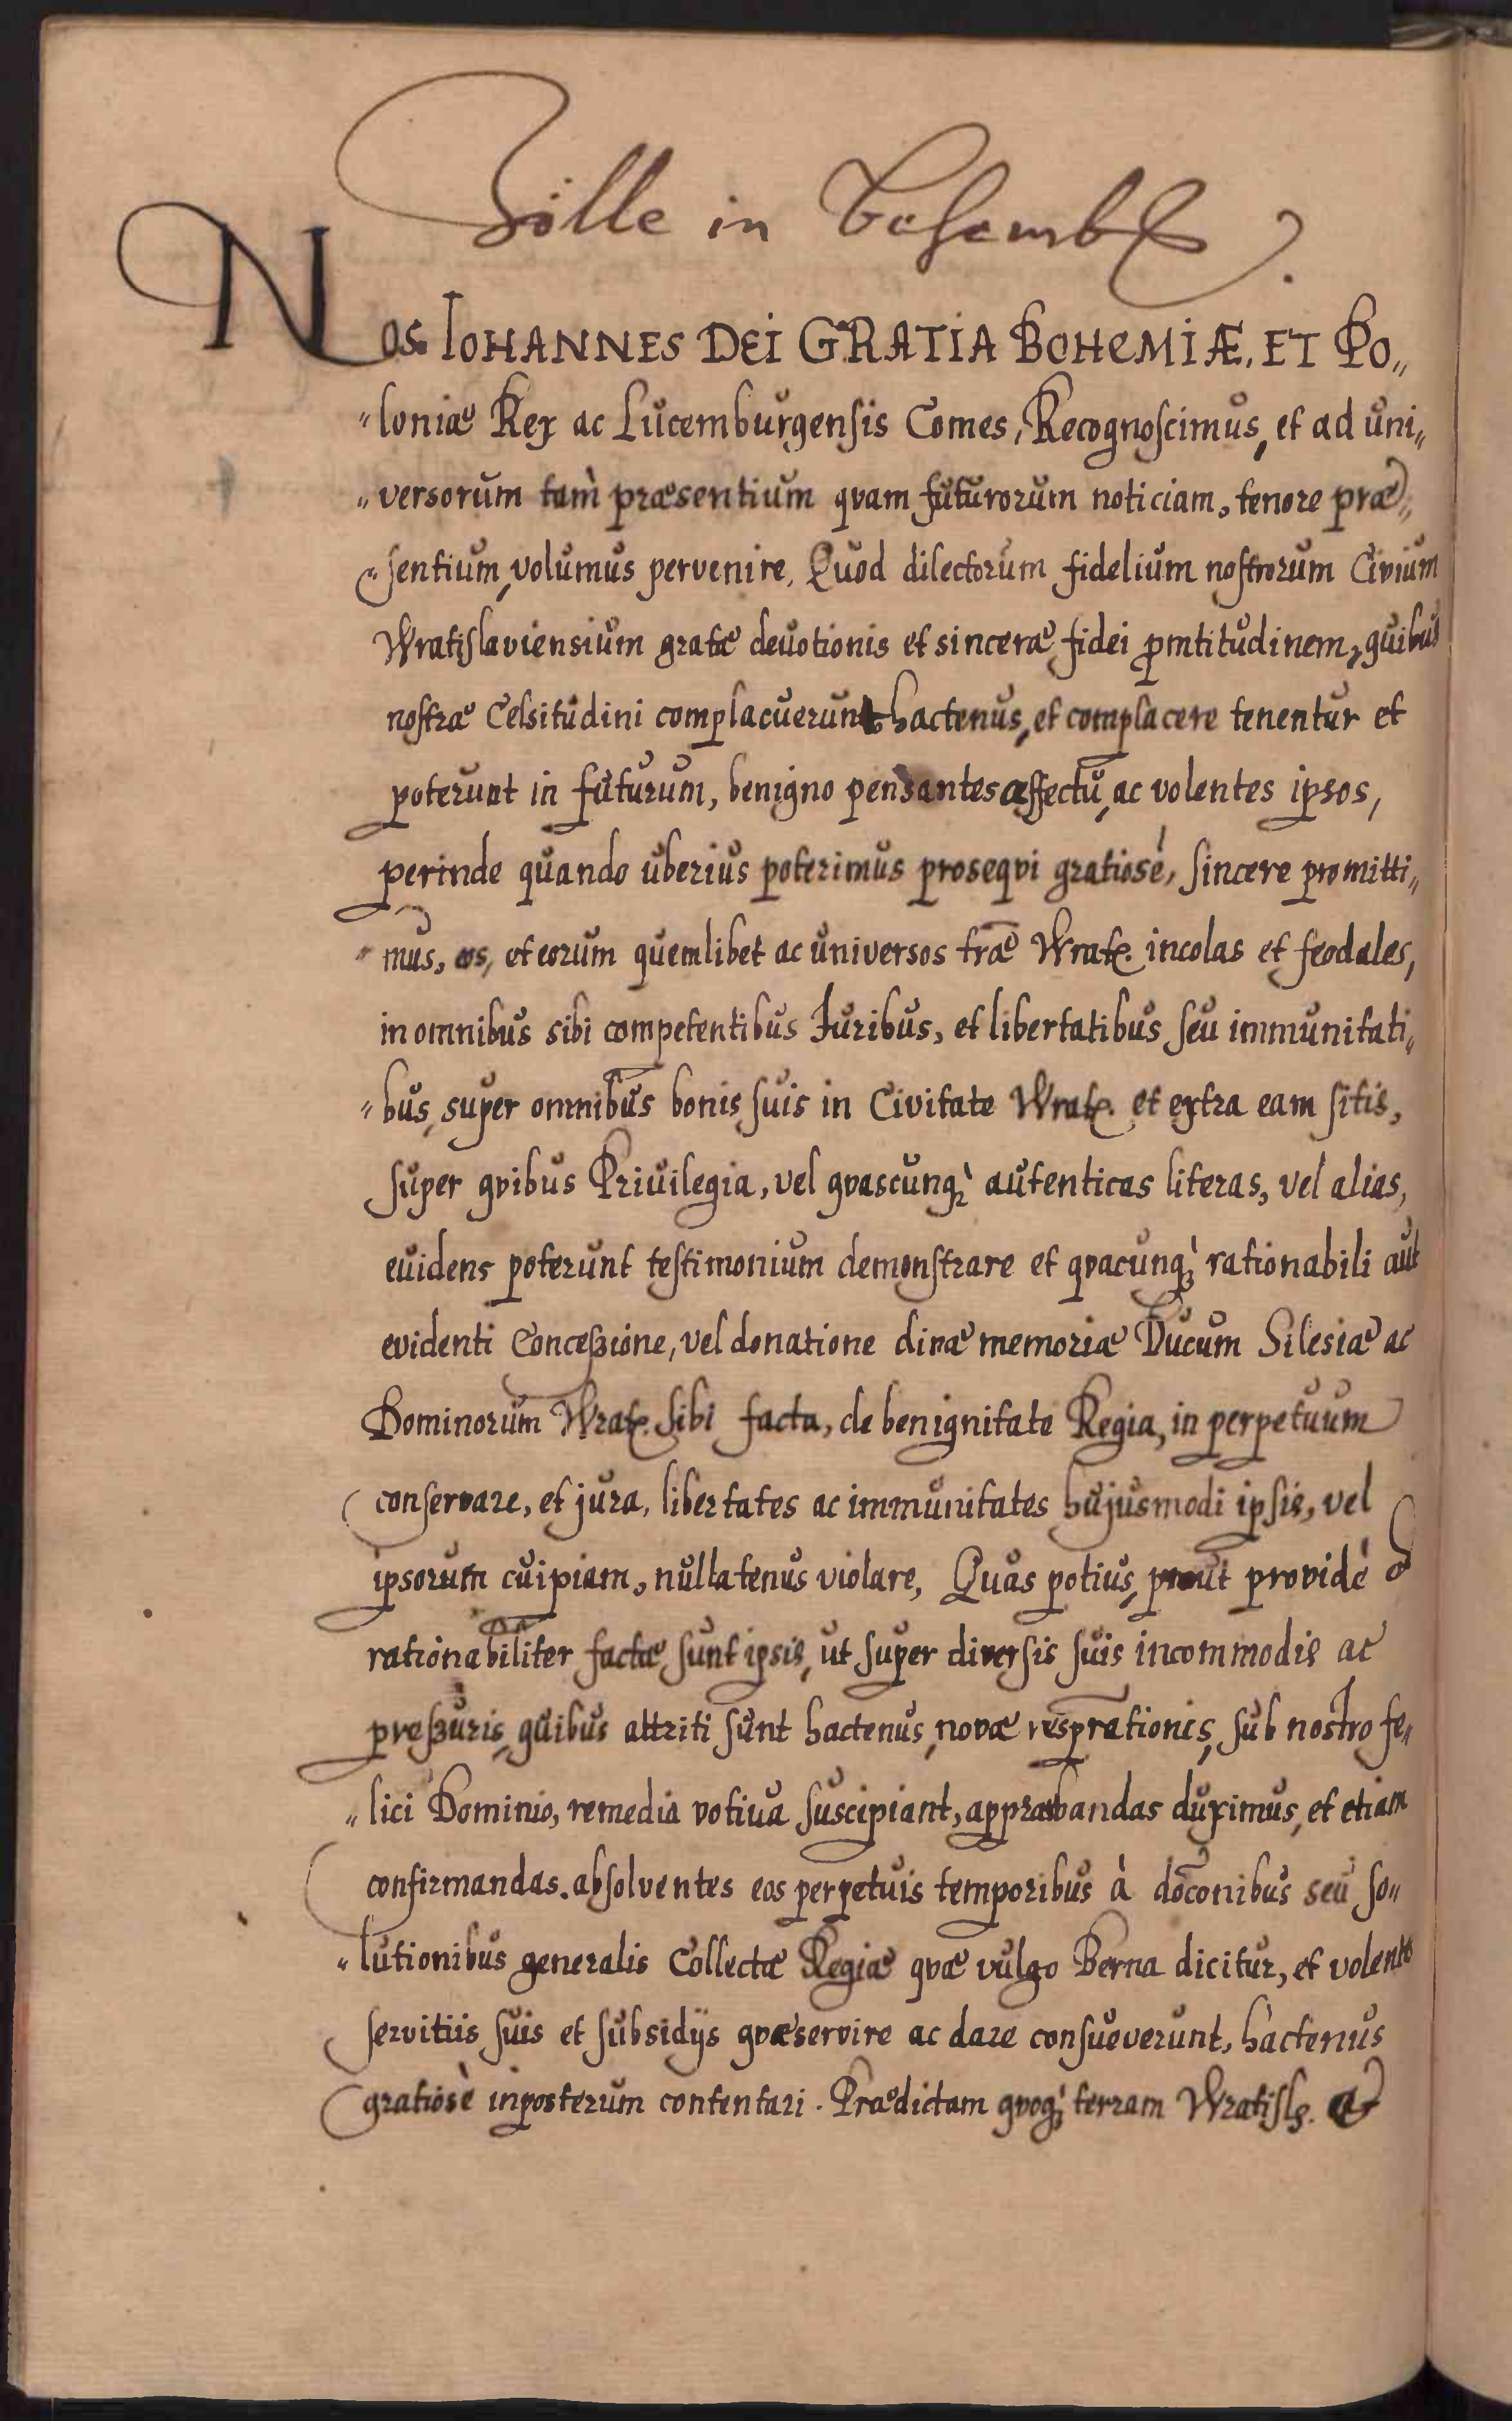 Zölle in Behemb.
Nos IOHANNES DEI GRATIA BOHEMIÆ, ET PO„
„loniæ Rex ac Lucemburgensis Comes, Recognoscimus, et ad uni„
„versorum tam præsentium qvam futurorum noticiam, tenore præ„
„sentium, volumus pervenire, Quod dilectorum fidelium nostrorum Civium
Wratislaviensium gratæ deuotionis et sinceræ fidei pmtitudinem, quibus
nostræ Celsitudini complacuerunt hactenus, et complacere tenentur et
poterunt in futurum, benigno pensantes affectu, ac volentes ipsos,
perinde quando uberius poterimus proseqvi gratiosè, sincere promitti„
„mus, eos, et eorum quemlibet ac universos træ Wrat. incolas et feodales,
in omnibus sibi competentibus Iuribus, et libertatibus seu immunitati„
„bus, super omnibus bonis suis in Civitate Wrat. et extra eam sitis,
super qvibus Priuilegia, vel qvascunq; autenticas literas, vel alias,
euidens poterunt testimonium demonstrare et qvacunq; rationabili aut
evidenti Conceßione, vel donatione divæ memoriæ Ducum Silesiæ ac
Dominorum Wrat. sibi facta, de benignitate Regia, in perpetuum
conservare, et jura, libertates ac immunitates hujusmodi ipsis, vel
ipsorum cuipiam, nullatenus violare, Quas potius, prout providè &
rationabiliter factæ sunt ipsis, ut super diversis suis incommodis ac
preßuris, quibus attriti sunt hactenus, novæ resprationis, sub nostro fe„
„lici Dominio, remedia votiua suscipiant, approbandas duximus, et etiam
confirmandas. absolventes eos perpetuis temporibus à doconibus seu so„
„lutionibus generalis Collectæ Regiæ qvæ vulgo Berna dicitur, et volentes
servitiis suis et subsidijs qvæ servire ac dare consueverunt, hactenus
gratiosè inposterum contentari. Prædictam qvoq; terram Wratisl. et